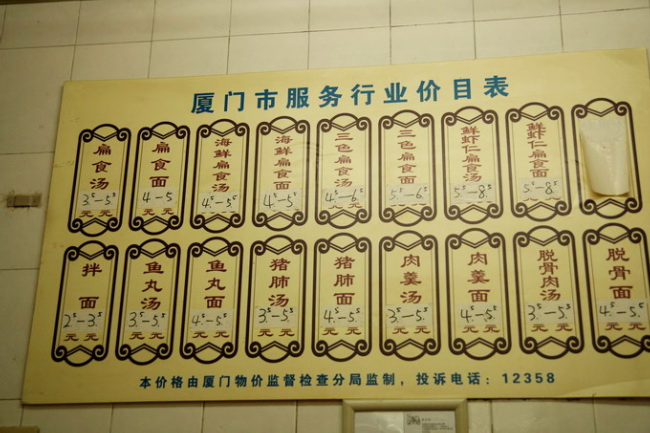 厦门市服务行业价目表
扁食汤 3⁵-5⁵ 元
扁食面 4-5 元
海鲜扁食汤 4⁵-5⁵ 元
海鲜扁食面 4⁵-5⁵ 元
三色扁食汤 4⁵-6 元
三色扁食面 5⁵-6⁵ 元
鲜虾仁扁食汤 5⁵-8⁵ 元
鲜虾仁扁食面 5⁵-8⁵ 元
拌面 2⁵-3⁵ 元
鱼丸汤 3⁵-5⁵ 元
鱼丸面 4⁵-5⁵ 元
猪肺汤 3⁵-5⁵ 元
猪肺面 4⁵-5⁵ 元
肉羹汤 3⁵-5⁵ 元
肉羹面 4⁵-5⁵ 元
脱骨肉汤 3⁵-5⁵ 元
脱骨面 4⁵-5⁵ 元
本价格由厦门物价监督检查分局监制，投诉电话：12358